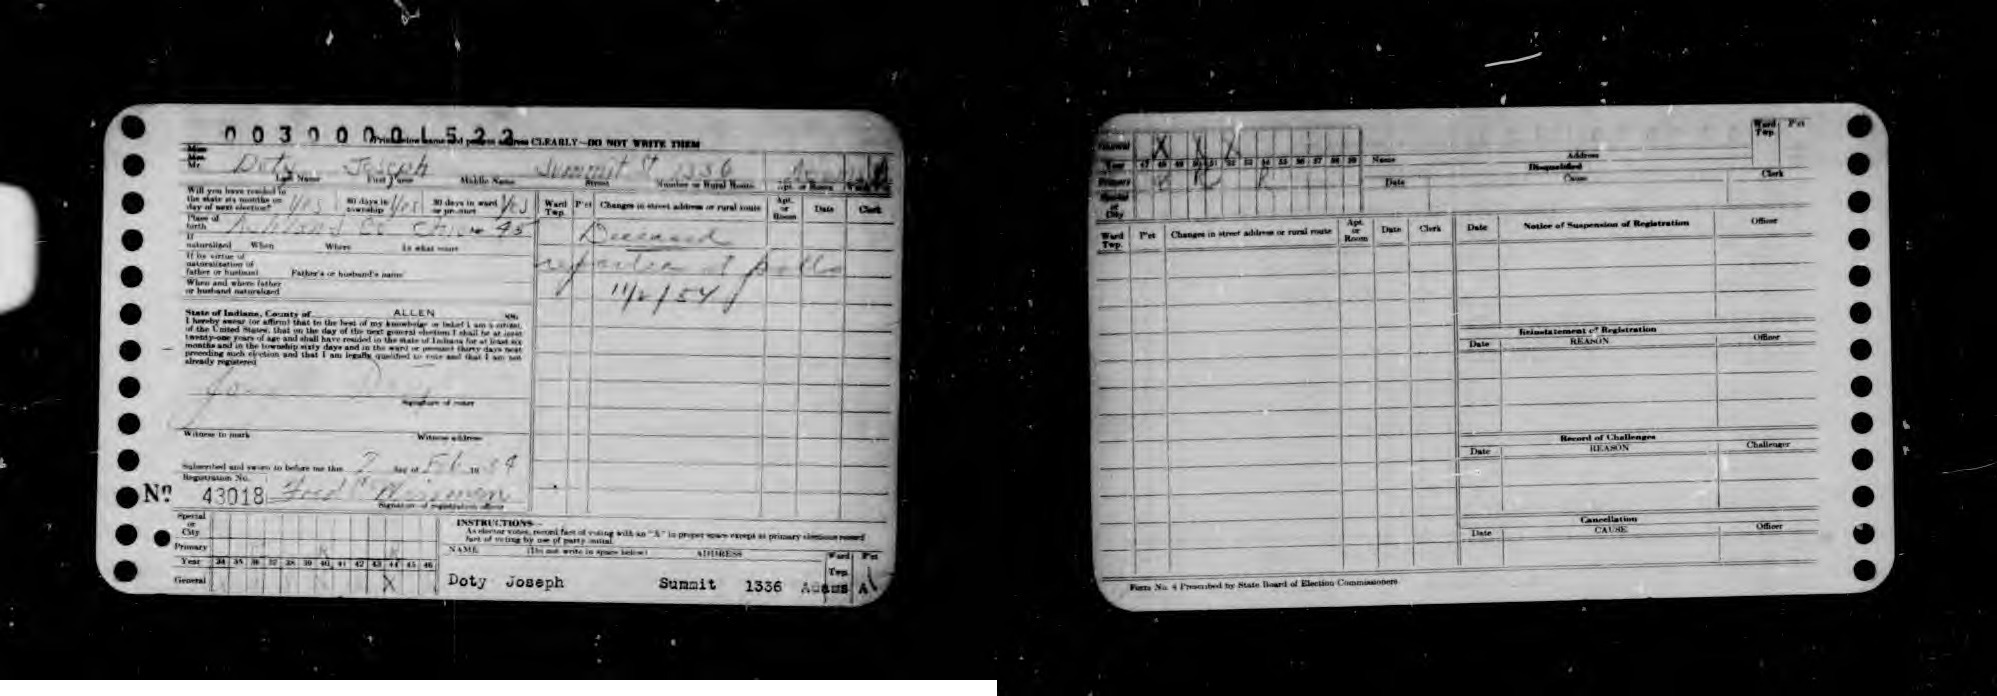 003000001522
Print below name and present address CLEARLY—DO NOT WRITE THEM
Miss
Mrs.
Mr. Doty Joseph Summit St 1336
Last Name First Name Middle Name Street Number or Rural Route Apt. or Room Ward Pct
Will you have resided in
the state six months on
day of next election? Yes 60 days in township Yes 30 days in ward or precinct Yes
Place of
birth Ashland Co Ohio
If
naturalized When Where In what court
If by virtue of
naturalization of
father or husband Father's or husband's name
When and where father
or husband naturalized
State of Indiana, County of ALLEN SS:
I hereby swear (or affirm) that to the best of my knowledge or belief I am a citizen
of the United States; that on the day of the next general election I shall be at least
twenty-one years of age and shall have resided in the state of Indiana for at least six
months and in the township sixty days and in the ward or precinct thirty days next
preceding such election and that I am legally qualified to vote and that I am not
already registered
Signature of voter
Witness to mark Witness address
Subscribed and sworn to before me this 2 day of Feb 19 34
Registration No.
No 43018
Signature of registration officer
Ward Twp. P'ct Changes in street address or rural route Apt. or Room Date Clerk
Deceased
reported at polls
11/2/54
Special
or
City
Primary
Year 34 35 36 37 38 39 40 41 42 43 44 45 46
General X
INSTRUCTIONS—
As elector votes, record fact of voting with an "X" in proper space except at primary elections record
fact of voting by use of party initial.
NAME (Do not write in space below) ADDRESS Ward Twp. P'ct
Doty Joseph Summit 1336 Adams A
General X X X
Year 47 48 49 50 51 52 53 54 55 56 57 58 59
Primary R R R
Special
or
City
Name Address Ward Twp. P'ct
Disqualified
Date Cause Clerk
Ward Twp. P'ct Changes in street address or rural route Apt. or Room Date Clerk
Date Notice of Suspension of Registration Officer
Reinstatement of Registration
Date REASON Officer
Record of Challenges
Date REASON Challenger
Cancellation
Date CAUSE Officer
Form No. 4 Prescribed by State Board of Election Commissioners